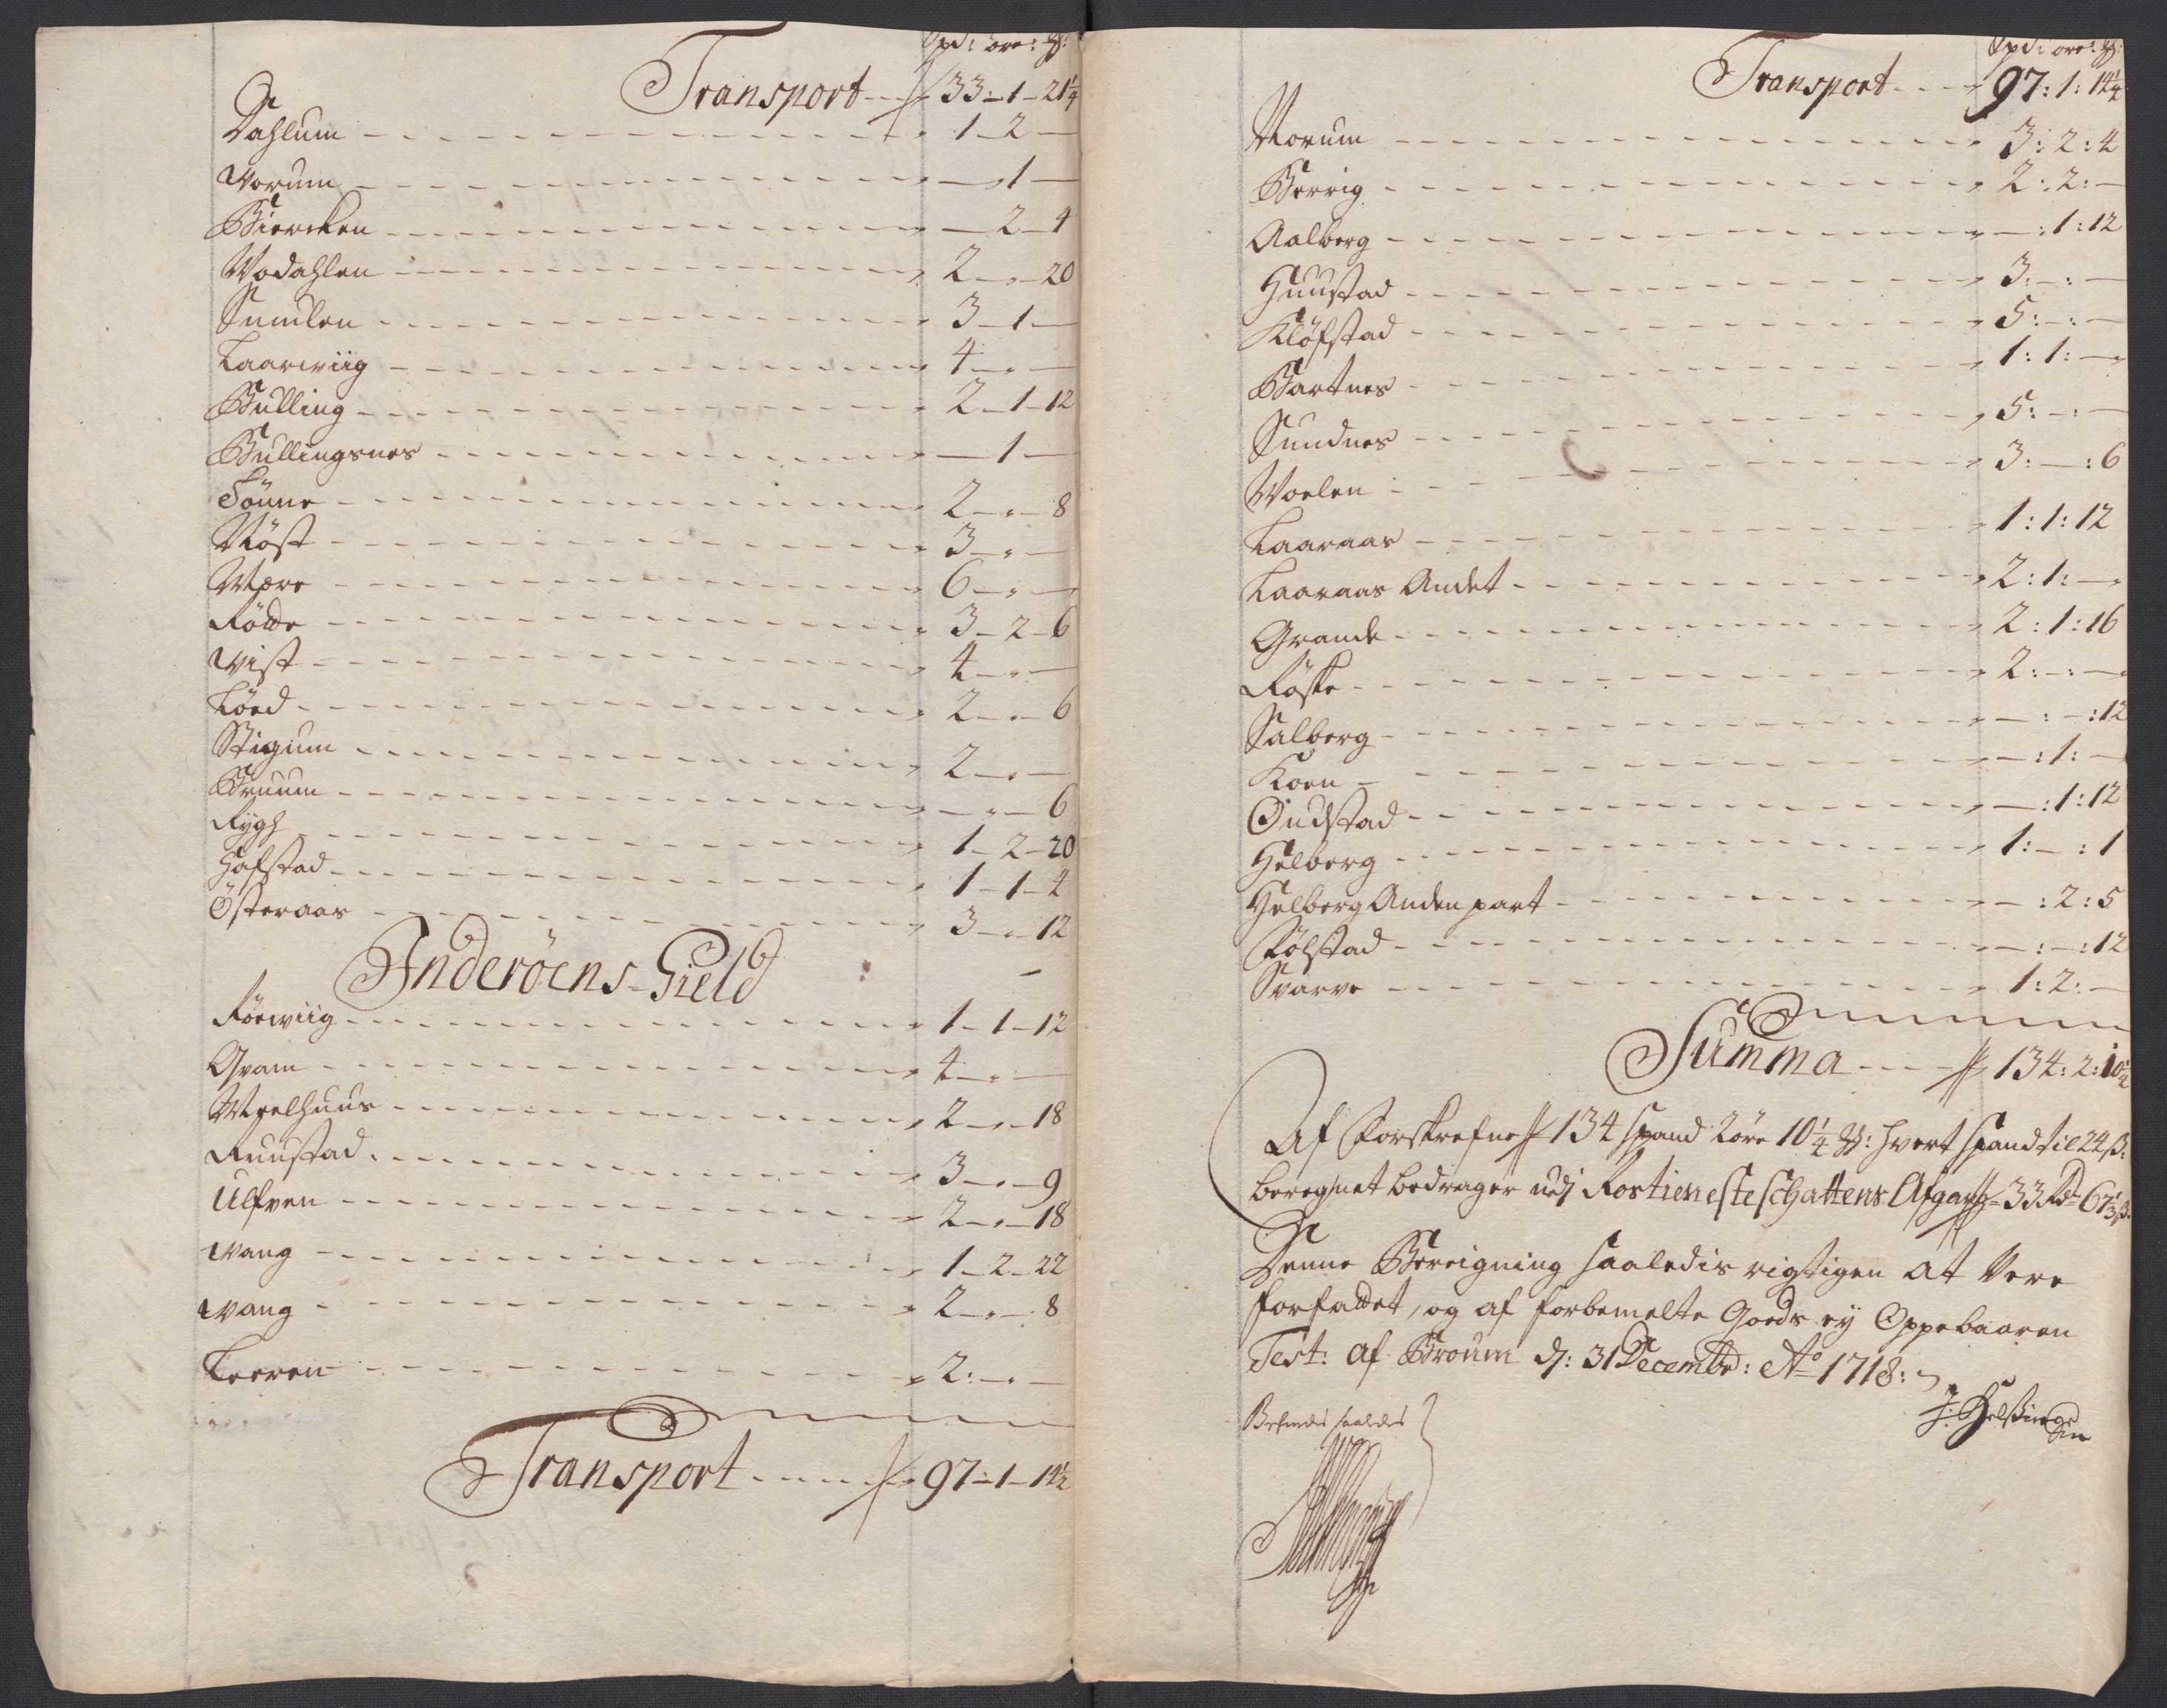 Spd: öre: ℔:
Transport 33-1-21¼
Dahlum 1-2-
Vorum -1-
Biercken -2-4
Wodahlen 2-"-20
Sumlen 3-1-
Laarwiig 4-"-
Bulling 2-1-12
Bullingsnes -1-
Tönne 2-"-8
Röst 3-"-
Mære 6-"-
Rödde 3-2-6
Wist 4-"-
Löed 2-"-6
Stigum 2-"-
Bruum -"-6
Rygh 1-2-20
Hafstad 1-1-4
Österaas 3-"-12
Inderöens-Gield
Röewiig 1-1-12
Qvam 4-"-
Melhuus 2-"-18
Ruustad 3-"-9
Ulfven 2-"-18
Wang 1-2-22
Wang 2-"-8
Leeren 2:-"-
Transport 97-1-14½
Spd: öre: ℔:
Transport 97:1:14¼
Norum 3:2:4
Berrig 2:2:-
Aalberg -:1:12
Huustad 3:-:-
Klöfstad 5:-:-
Bartnes 1:1:-
Sundnes 5:-:-
Woelen 3:-:6
Laaraas 1:1:12
Laaraas Andet 2:1:-
Grande 2:1:16
Röske 2:-:-
Salberg -:-:12
Koen -:1:-
Oudstad -:1:12
Helberg 1:-:1
Helberg Anden part -:2:5
Tölstad -:-:12
Svarve 1:2:-
Summa 134:2:10¼
Af Forskrefne 134 spand 2 öre 10¼ ℔: hvert spand til 24 ß:
beregnet bedrager udj Rostieneste schattens Afgang 33 Rdr 67⅓ ß.
Denne Bereigning saaledis rigtigen at Vere
forfattet, og af forbemelte Gods ey Oppebaaren
Test: Af Broum d: 31 Decembr: Ao 1718:
Befindes saaledes